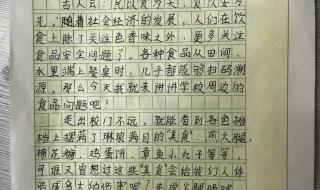 古人云：民以食为天，食以安为
先。随着社会经济的发展，人们在饮
食上除了关注色香味之外，更多关注
食品安全问题了。各种食品从田间、
水里端上餐桌时，几乎都能够扫码溯
源。那么今天我就来讲讲学校周边的
食品问题吧！
走出校门不远，就能看到各色摊
档上摆满了琳琅满目的“美食”：煎火腿、
棉花糖、鸡蛋饼、章鱼小丸子等等，
可谁又曾想过这些“美食”会给我们人体
造成多大的伤害呢？先说火腿肠